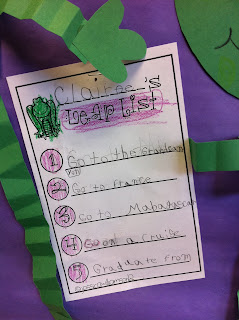 Claire's
Leap List
1 Go to the
2 Go to France
3 Go to Madagascar
4 Go on a Cruise
5 Graduate From